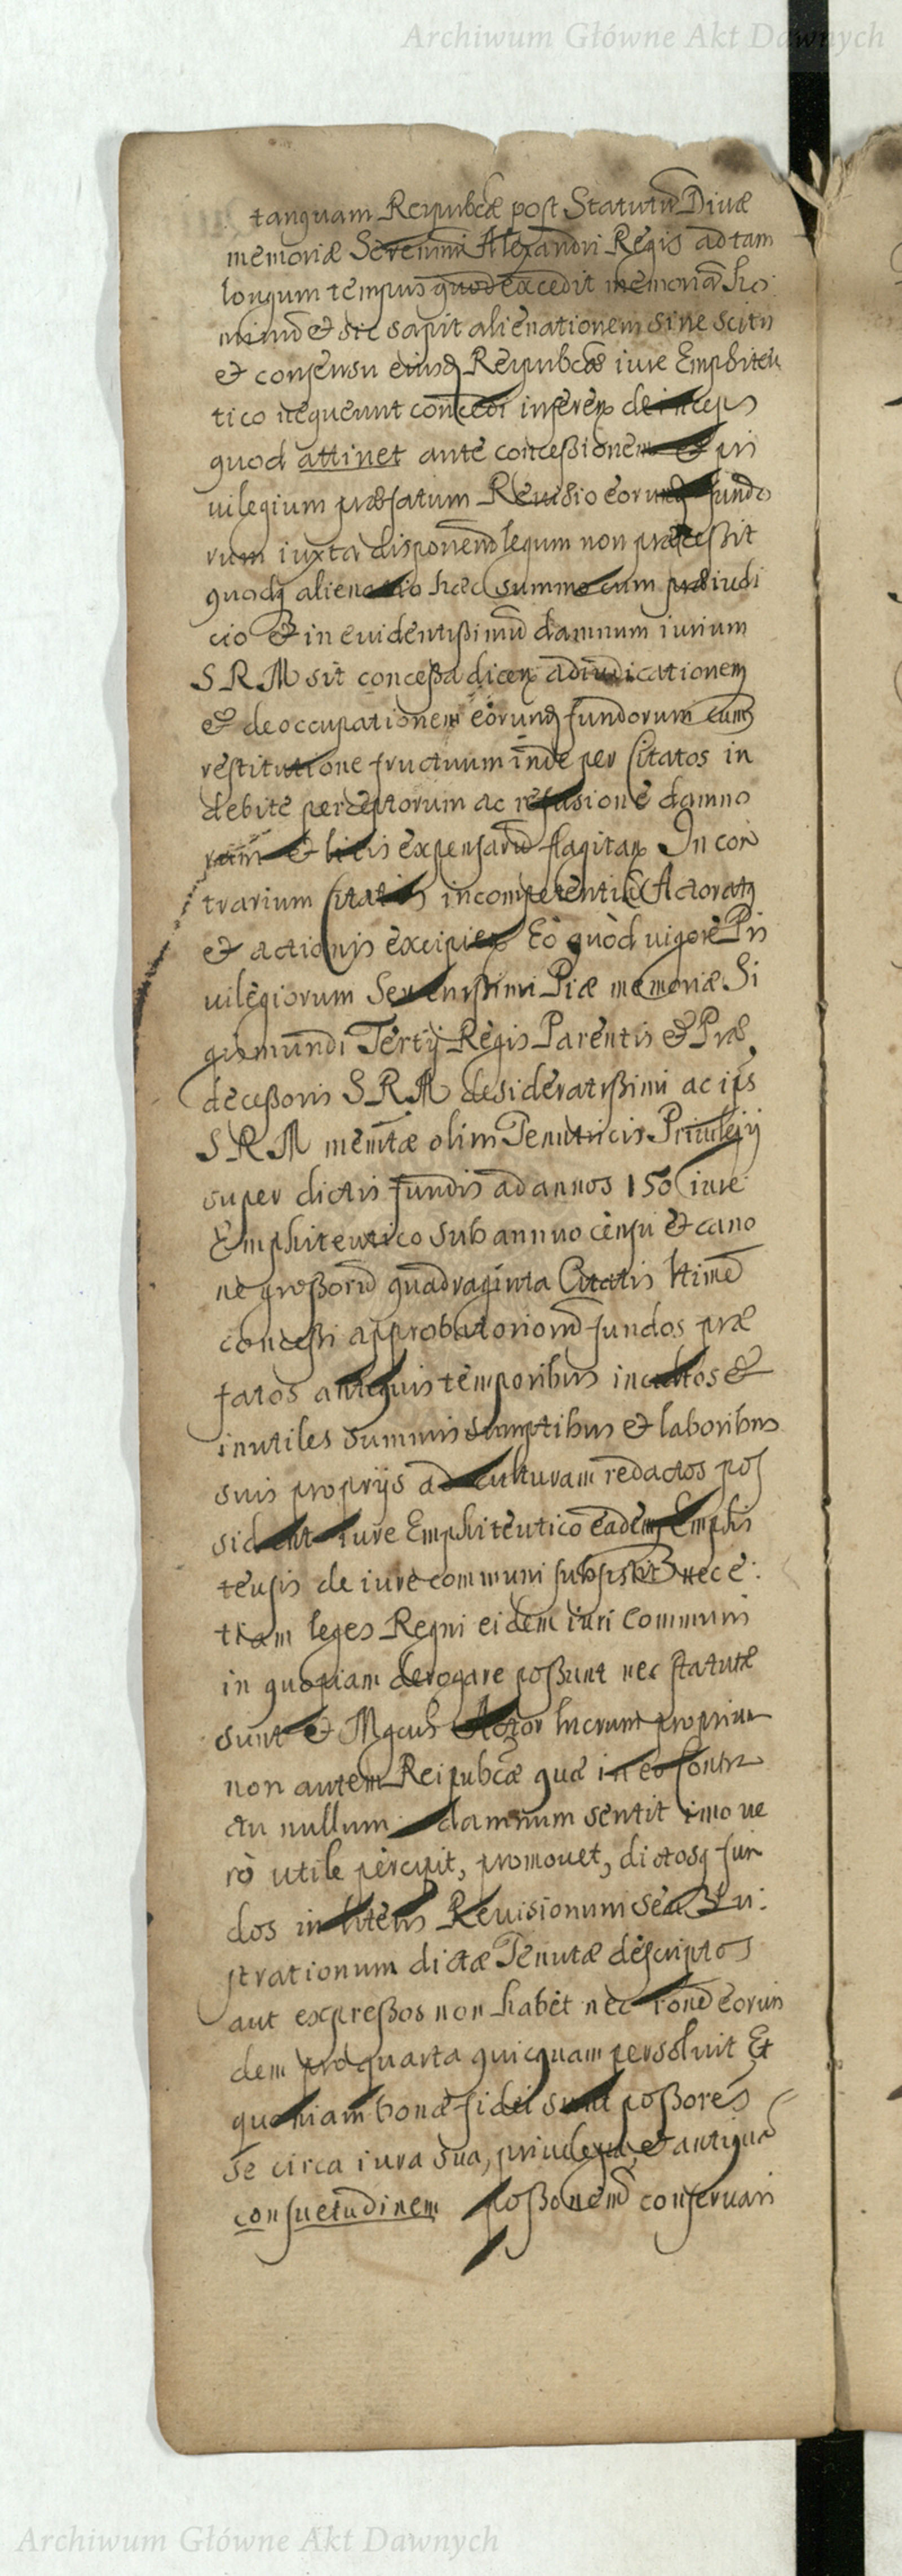 Archiwum Główne Akt Dawnych
tanquam Reipubcæ post Statutũ Divæ
memoriæ Serenmi Alexandri Regis ad tam
longum tempus quod excedit memoriã ho
minũ et sic sapit alienationem sine scitu
et consensu eiusq Reipubcæ iure Emphiteu
tico nequeunt concedi inferen deinceps
quod attinet ante concessionem et pri
uilegium præfatum Reuisio eorundẽ fundo
rum iuxta disponend legum non præcessit
quodq alienatio hæc summo cum præiudi
cio et in euidentissimũ damnum iurium
S R M sit concessa dicen adiudicationem
et deoccupationem eorund fundorum cum
restitutione fructuum inde per Citatos in
debite perceptorum ac refusione damno
rum et litis expensarũ flagitan In con
trarium Citatis incompetentiã Actoratq
et actionis excipien Eò quòd uigore Pri
uilegiorum Serenissimi Piæ memoriæ Si
gismundi Tertij Regis Parentis et Præ
decessoris S R M desideratissimi ac ips
S R M memtæ olim Tenutricis Priuilegij
super dictis fundis ad annos 150 iure
Emphiteutico sub annuo censu et cano
ne grossorũ quadraginta Citatis
concessi approbatoriorũ fundos præ
fatos antiquis temporibus incultos et
inutiles summis sumptibus et laboribus
suis proprijs ad culturam redactos pos
sident iure Emphiteutico eadem Emphi
teusis de iure communi subsistit nec e
tiam leges Regni eidem iuri communi
in quopiam derogare possunt nec statutæ
sunt et Mgcus Actor lucrum proprium
non autem Reipubcæ quæ in eo contra
ctu nullum damnum sentit imo ue
rò utile percipit, promouet, dictosq fun
dos in literis Reuisionum seu Lu
strationum dictæ Tenutæ descriptos
aut expressos non habet nec rone eorun
dem pro quarta quicquam persoluit Et
quoniam bonæ fidei sunt possores
se circa iura sua, priuilegia, et antiquã
consuetudinem possonemq conseruari
Archiwum Główne Akt Dawnych